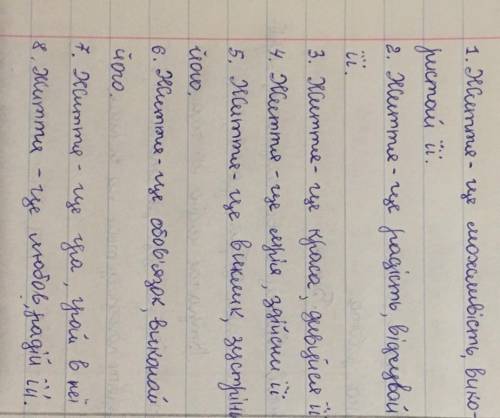 1. Життя - це можливість, вико-
ристай її.
2. Життя - це радість, відчувай
її.
3. Життя - це краса, дивуйся їй
4. Життя - це мрія, здійсни її.
5. Життя - це виклик, зустрінь
його.
6. Життя - це обов'язок, виконай
його.
7. Життя - це гра, грай в неї
8. Життя - це любов, радій їй.